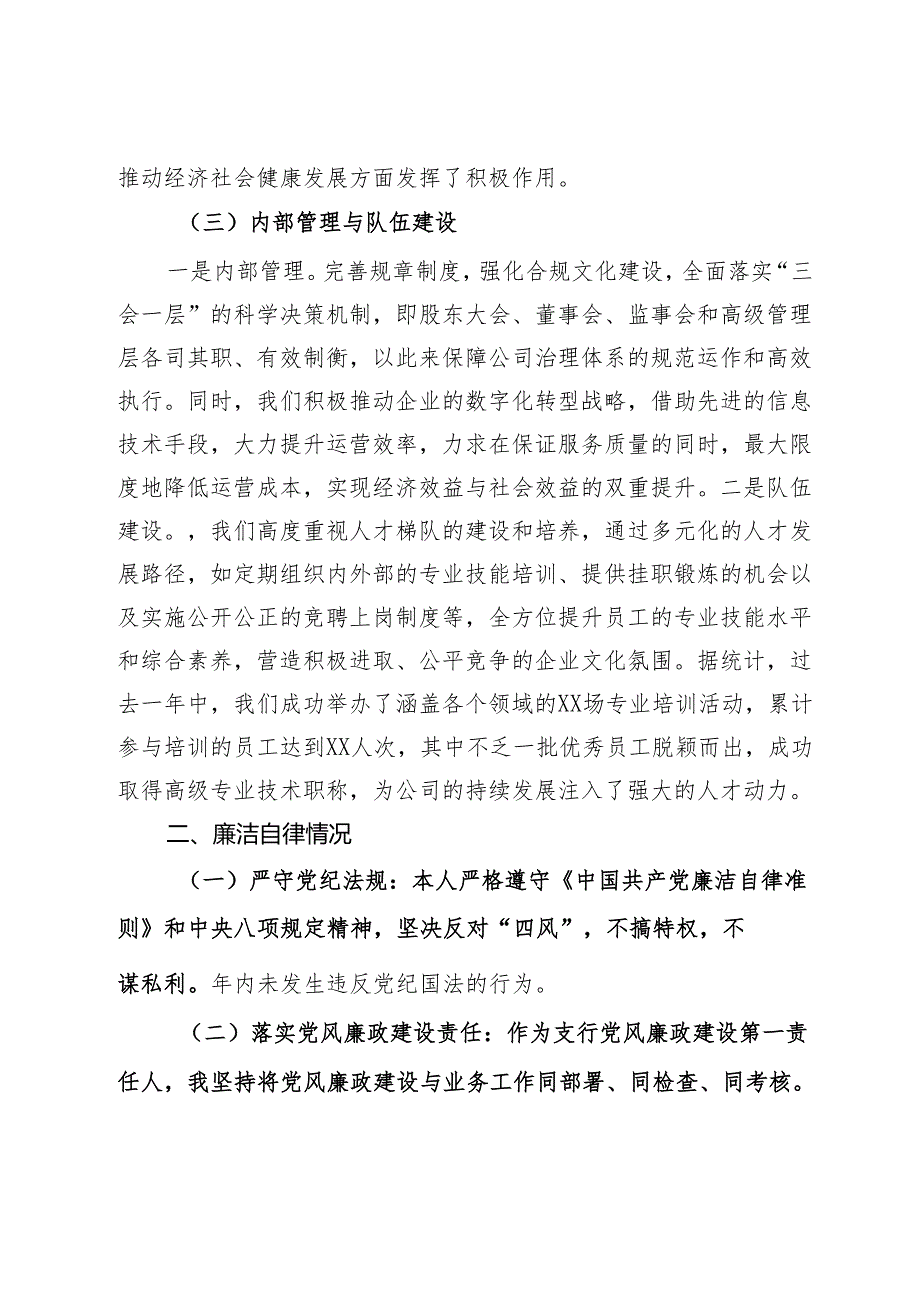 推动经济社会健康发展方面发挥了积极作用。
（三）内部管理与队伍建设
一是内部管理。完善规章制度，强化合规文化建设，全面落实“三
会一层”的科学决策机制，即股东大会、董事会、监事会和高级管理
层各司其职、有效制衡，以此来保障公司治理体系的规范运作和高效
执行。同时，我们积极推动企业的数字化转型战略，借助先进的信息
技术手段，大力提升运营效率，力求在保证服务质量的同时，最大限
度地降低运营成本，实现经济效益与社会效益的双重提升。二是队伍
建设。，我们高度重视人才梯队的建设和培养，通过多元化的人才发
展路径，如定期组织内外部的专业技能培训、提供挂职锻炼的机会以
及实施公开公正的竞聘上岗制度等，全方位提升员工的专业技能水平
和综合素养，营造积极进取、公平竞争的企业文化氛围。据统计，过
去一年中，我们成功举办了涵盖各个领域的XX场专业培训活动，累计
参与培训的员工达到XX人次，其中不乏一批优秀员工脱颖而出，成功
取得高级专业技术职称，为公司的持续发展注入了强大的人才动力。
二、廉洁自律情况
（一）严守党纪法规：本人严格遵守《中国共产党廉洁自律准
则》和中央八项规定精神，坚决反对“四风”，不搞特权，不
谋私利。年内未发生违反党纪国法的行为。
（二）落实党风廉政建设责任：作为支行党风廉政建设第一责
任人，我坚持将党风廉政建设与业务工作同部署、同检查、同考核。